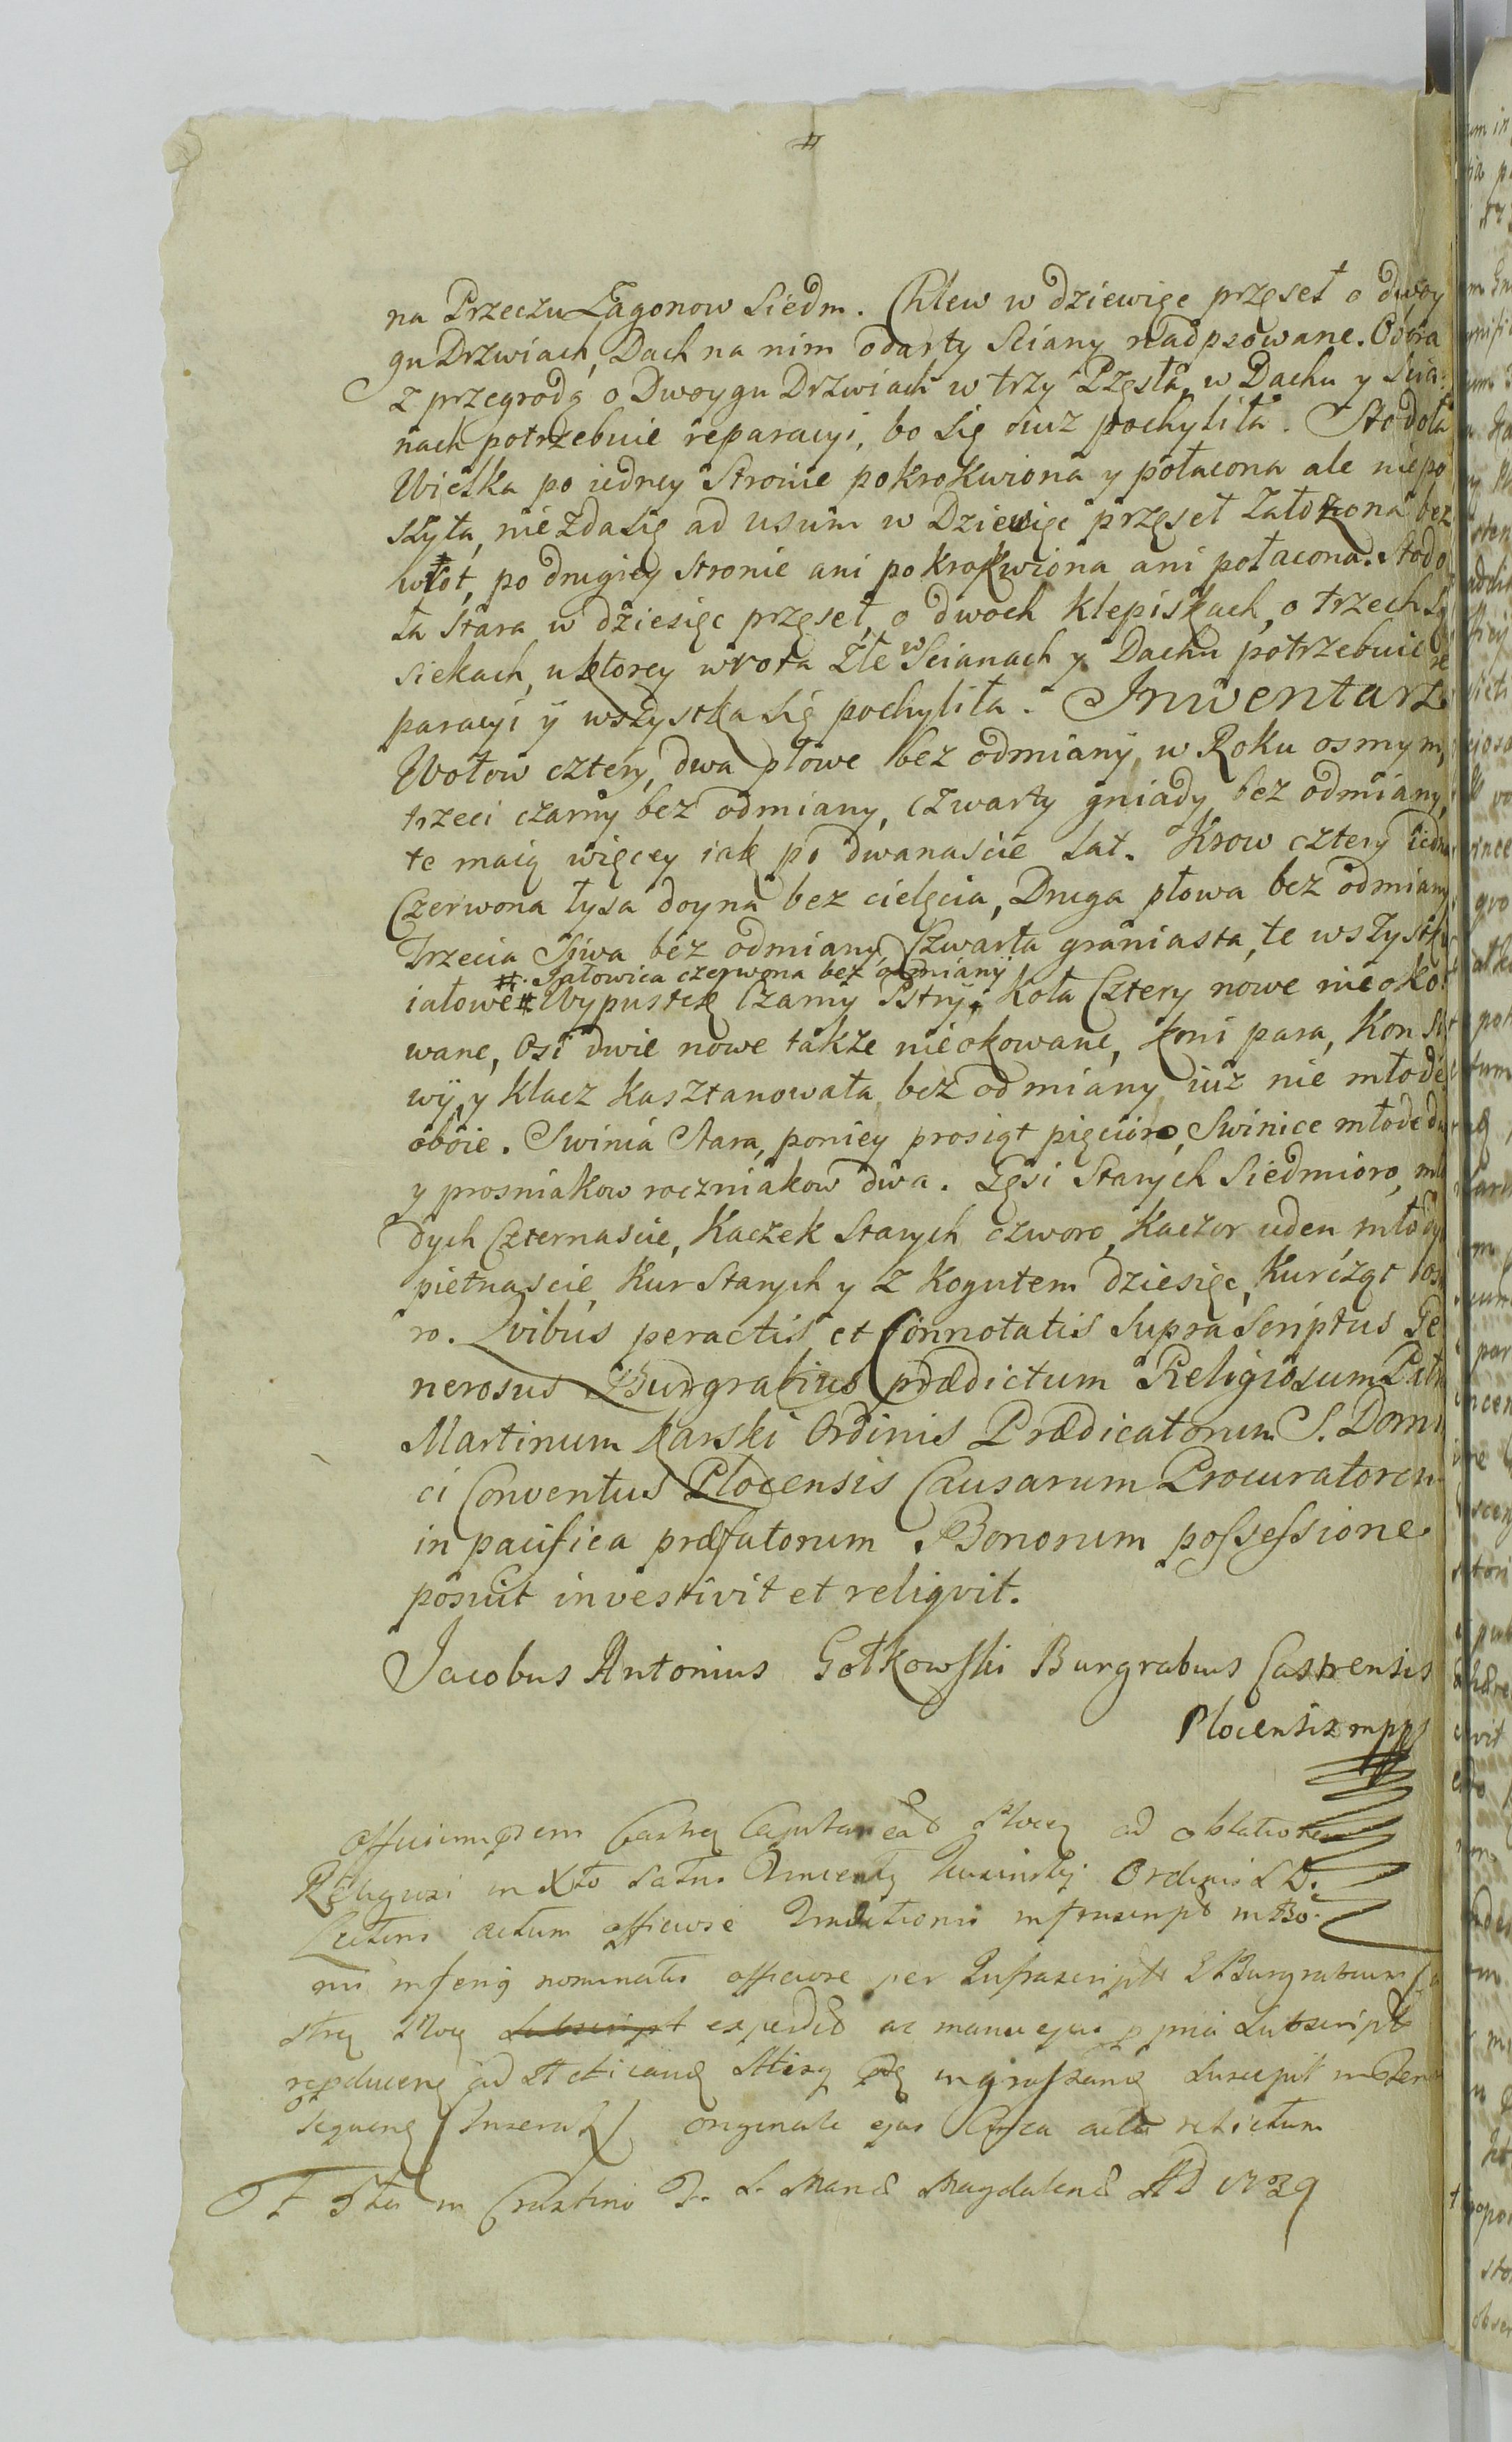 #
na Przeczu Zagonow Siedm. Chlew w dziewięc przęseł o dwoy
gu Drzwiach, Dach na nim odarty Sciany nadpsowane. Obora
z przegrodą o Dwoygu Drzwiach w trzy Pzęsła, w Dachu y Scia:
nach potrzebuie reparacyi, bo się iuz pochyliła. Stodoła
Wielka po iedney Stronie pokrokwiona y połacona ale niepo
szyta, niezdasię ad usum w Dziewięc przęseł Załozona bez
wrot, po drugiey stronie ani pokrokwiona ani połacona. Stodo
ła stara w dziesięc przęseł, o dwoch klepiskach, o trzech Są
siekach, uktorey wrota Złe w Scianach y Dachu potrzebuie re
paracyi ÿ wszystka się pochyliła. Inwentarz
Wołow cztery, dwa płowe bez odmiany, w Roku osmym,
trzeci czarny bez odmiany, czwarty gniady bez odmiany,
te maią więcey iak po dwanascie Lat. Krow cztery iedna
Czerwona łysa doyna bez cielęcia, Druga płowa bez odmiany
Trzecia Siwa bez odmiany, Czwarta graniasta, te wszystkie
#. Jałowica czerwona bez odmiany
iałowe # Wypustek Czarny Pstry, Koła Cztery nowe nieoko:
wane, Osi dwie nowe także nieokowane, koni para, Kon Si
wÿ, y klacz kasztanowata bez odmiany iuż nie młode
oboie. Swinia Stara, poniey prosiąt pięcioro, Swinice młode dw
y prosniakow roczniakow dwa. Gęsi Starych Siedmioro, mło
dych Czternascie, Kaczek Starych czworo, Kaczor ieden młodych
pietnascie, Kur Starych y z kogutem dziesięc, Kurcząt os
ro. Qvibus peractis et Connotatis Supra Scriptus Ge
nerosus Burgrabius prædictum Religiosum Patr
Martinum Karski Ordinis Prædicatorum S. Domi
ci Conventus Plocensis Causarum Procuratorem
in pacifica præfatorum Bonorum possessione
posuit investivit et reliqvit.
Jacobus Antonius Gołkowski Burgrabius Castrensis
Plocensis mpp
Officium Castren Capitan Plocen ad oblationem
Religiosi in Xto Patris Ordinis S. D.
actum officiose Traditionis infrascript in Bo-
nis inferius nominatis officiose per Infrascript G Burgrabium Ca
stren Plocen Subscript expedit ac manu ejus ppria Subscript
suscepit
sequens (Inserat) originale ejus circa acta relictum
in Crastino F. S. Mariæ Magdalenæ AD 1739